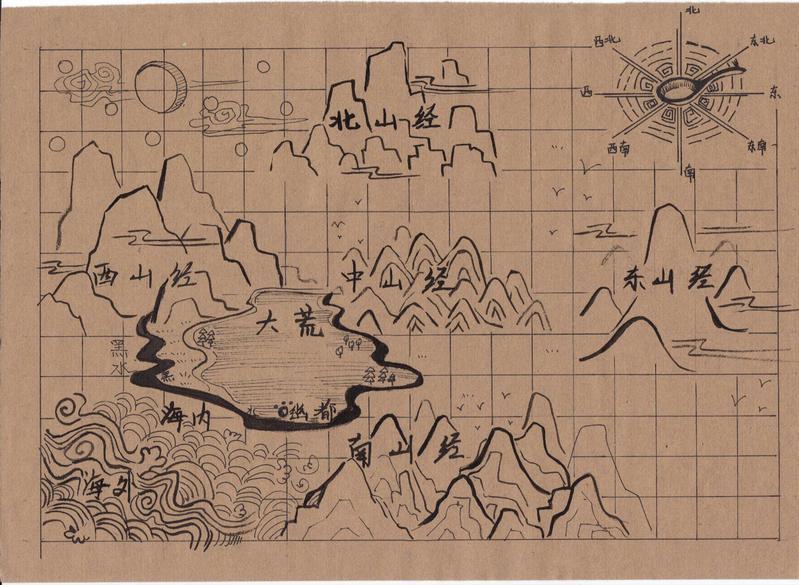 北
西北
东北
西
东
西南
东南
南
北山经
西山经
中山经
东山经
大荒
黑水
海内
幽都
南山经
海外